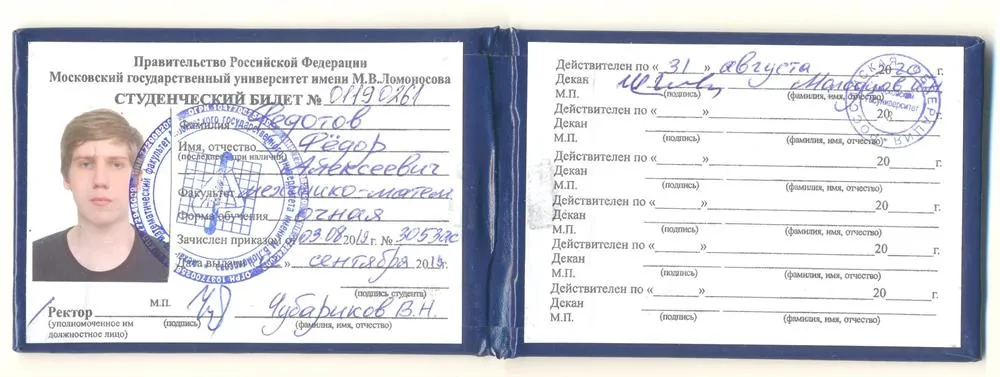 Правительство Российской Федерации
Московский государственный университет имени М.В.Ломоносова
СТУДЕНЧЕСКИЙ БИЛЕТ № 01190261
Фамилия Федотов
Имя, отчество Фёдор
(последнее при наличии) Алексеевич
Факультет механико-матем
Форма обучения очная
Зачислен приказом от 03.08 2019 г. № 305зас
Дата выдачи » сентября 2019 г.
(подпись студента)
М.П.
Ректор Чубариков В.Н.
(уполномоченное им (подпись) (фамилия, имя, отчество)
должностное лицо)
Действителен по « 31 » августа 20 г.
Декан
М.П. (подпись) (фамилия, имя, отчество)
Действителен по « » 20 г.
Декан
М.П. (подпись) (фамилия, имя, отчество)
Действителен по « » 20 г.
Декан
М.П. (подпись) (фамилия, имя, отчество)
Действителен по « » 20 г.
Декан
М.П. (подпись) (фамилия, имя, отчество)
Действителен по « » 20 г.
Декан
М.П. (подпись) (фамилия, имя, отчество)
Действителен по « » 20 г.
Декан
М.П. (подпись) (фамилия, имя, отчество)